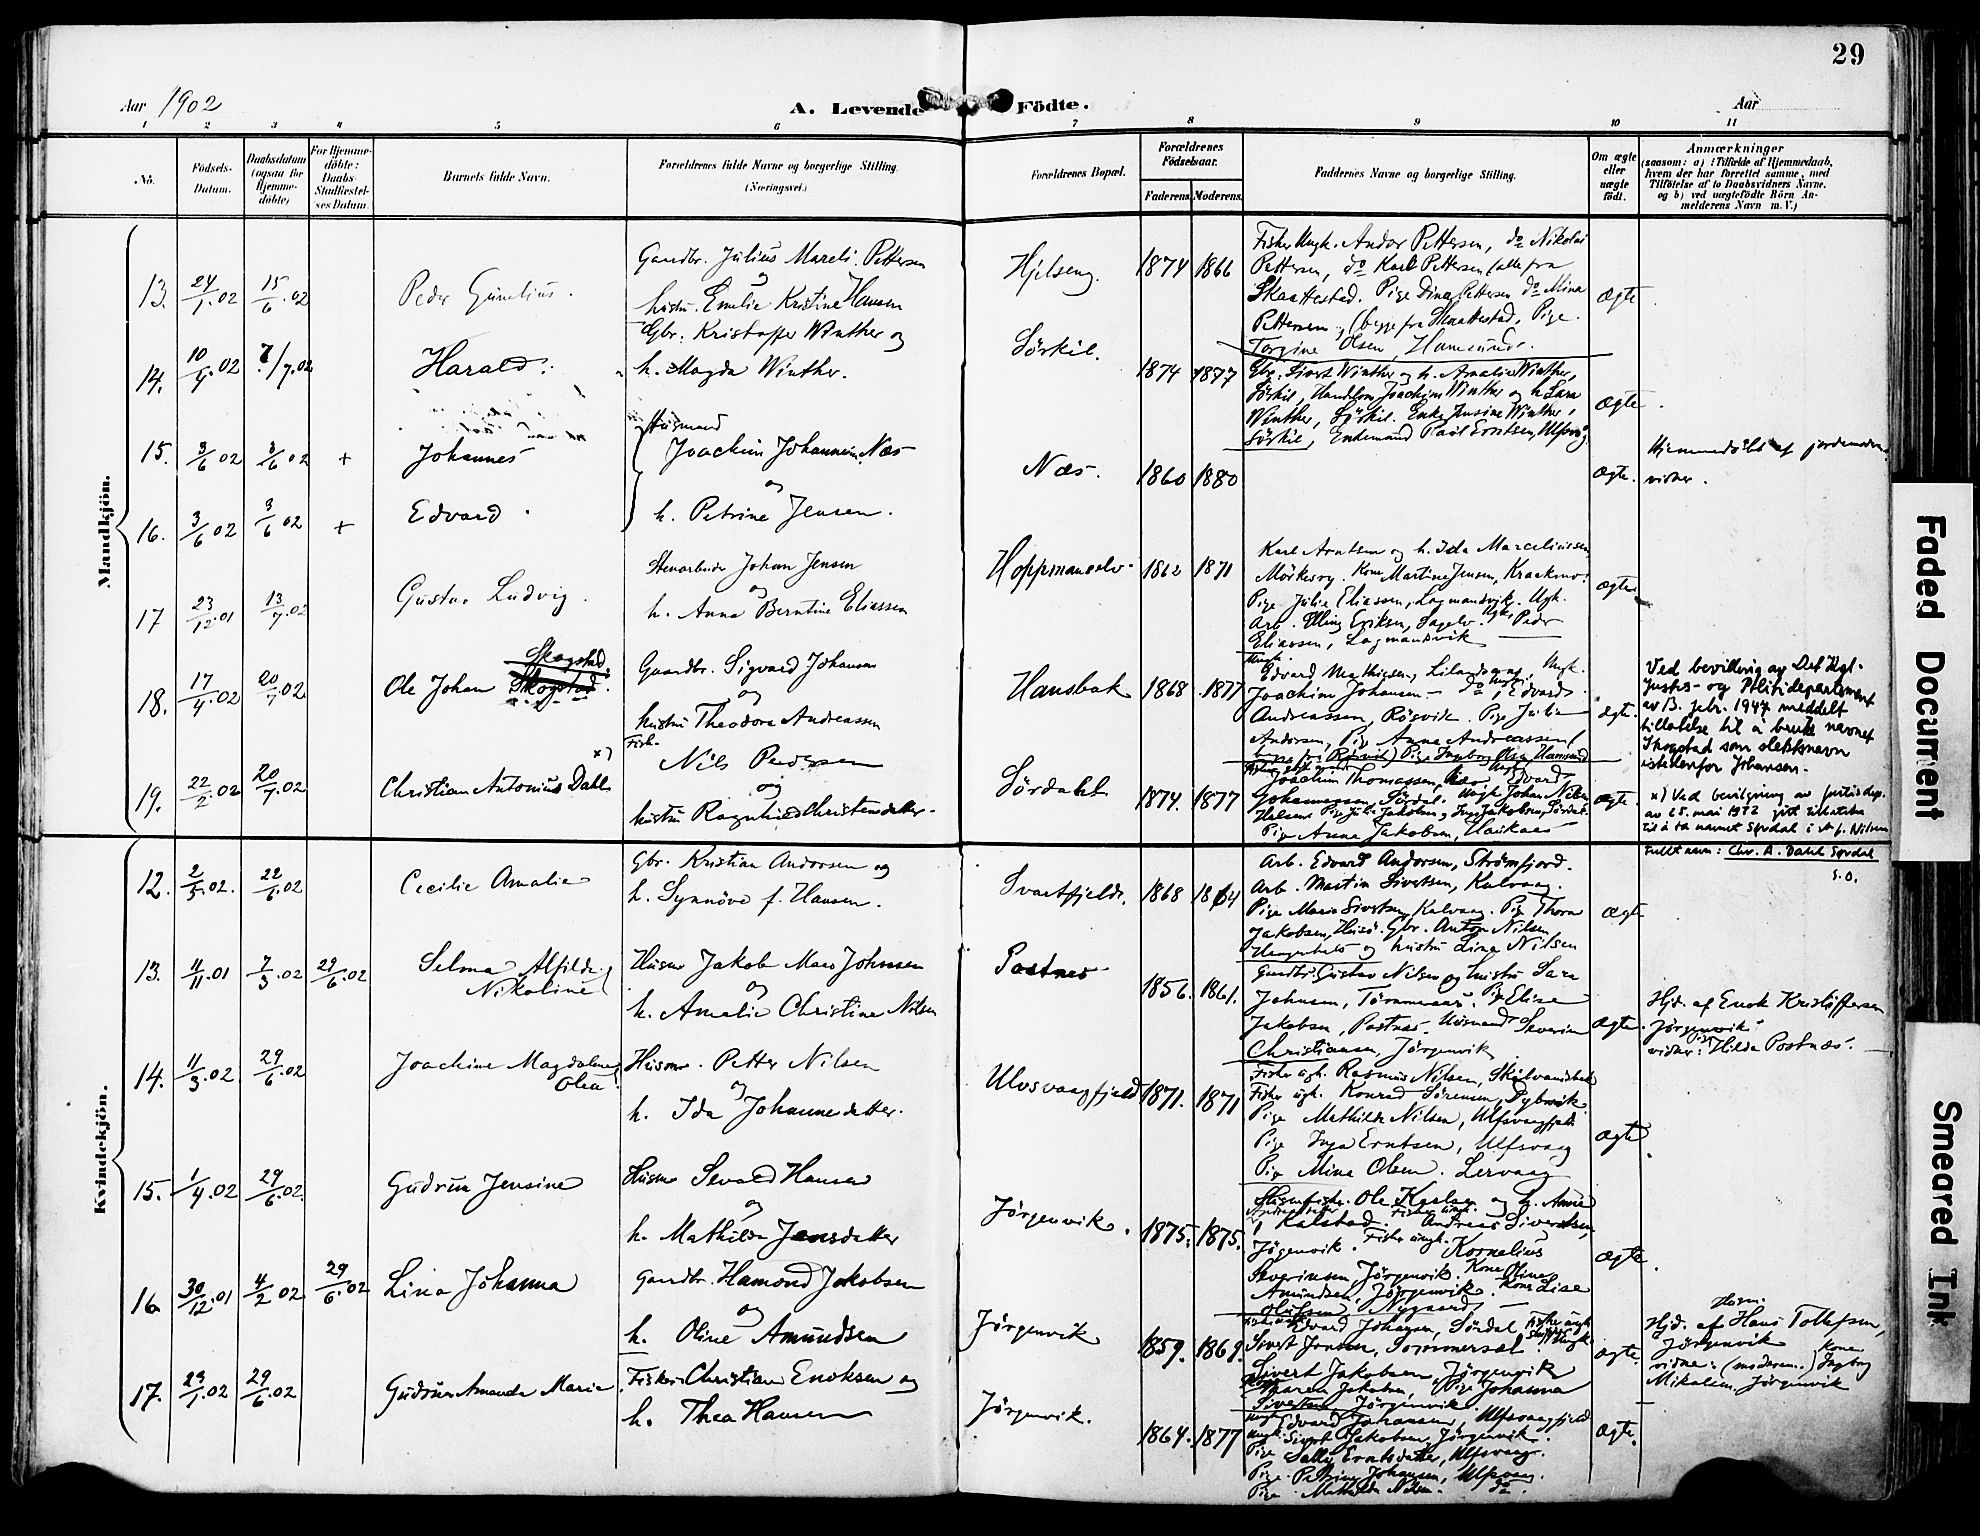 29
Aar 1902
A. Levende Födte.
Aar
1 2 3 4 5 6 7 8 9 10 11
No.
Födsels-Datum.
Daabsdatum (ogsaa for Hjemme-döbte)
For Hjemme-döbte: Daabs-Stadfæstel-ses Datum.
Barnets fulde Navn.
Forældrenes fulde Navne og borgerlige Stilling.
(Næringsvei.)
Forældrenes Bopæl.
Forældrenes Födselsaar.
Faderens. Moderens.
Faddernes Navne og borgerlige Stilling.
Om ægte eller uægte födt.
Anmærkninger
(saasom: a) i Tilfælde af Hjemmedaab,
hvem der har forrettet samme, med
Tilföielse af to Daabsvidners Navne,
og b) ved uægtefödte Börn An-
melderens Navn m. V.)
Mandkjön.
13. 24/1.02 15/6.02 Peder Gunelius.
Gaardbr. Julius Mareli Pettersen
og
hustru Emelie Kristine Hansen
Hjelseng. 1874 1866
Fisker Ungk. Andor Pettersen, do Nikolai
Pettersen, do Karl Pettersen (alle fra
Skaattestad. Pige Dina Pettersen do Mina
Pettersen, (begge fra Skaattestad, Pige
Torgine Olsen, Hamsund.
Ægte
14. 10/4.02 7/7.02 Harald.
Gbr. Kristoffer Winther og
h. Magda Winther.
Sörkil. 1874 1877
Gbr. Sivert Winther og h. Amalie Winther,
Sörkil, Handlsm Joachim Winther og h Sara
Winther, Sörkil. Enke Jensine Winther,
Sörkil, Enkemand Paul Erntsen, Ulfsvåg
Ægte.
15. 3/6 02 3/6 02 + Johannes
Husmand
Joachim Johannesen Næs
og
h. Petrine Jensen.
Næs. 1860 1880
Ægte.
Hjemmedöbt af jordemoder
vidner.
16. 3/6 02 3/6 02 + Edvard
17 23/12.01 13/7.02 Gustav Ludvig.
Stenarbeider Johan Jensen
og
h. Anna Berntine Eliassen
Hoppmanselv 1862 1871
Karl Arntsen og h. Ida Marceliussen
Mörkesvy. Kone Martine Jensen, Kraakmo.
Pige Julie Eliassen, Lagmansvik. Ugk.
Arb. Elling Eriksen, Sagelv. Ugk. Peder
Eliassen, Lagmansvik
Ægte.
18. 17/4.02 20/7.02 Ole Johan Skogstad. Skogstad.
Gaardbr. Sigvard Johansen
og
hustru Theodora Andreassen
Hansbak 1868 1877
Edvard Mathisen, Ungk.
Joachim Johansen – do, Edvard
Andreassen, Rösvik. Pige Julie
Andorsen, Pige Anne Andreassen
Pige Ingeborg Olsen Hamsund
ægte.
Ved bevilling av Det Kgl.
Justis- og Politidepartement
av 13. febr. 1947 meddelt
tillatelse til å bruke navnet
Skogstad som slektsnavn
istedenfor Johansen.
19. 22/2.02 20/7.02 Christian Antonius Dahl x)
Fisk.
Nils Pedersen
og
hustru Ragnhild Christensdatter.
Sördahl 1874. 1877
Joachim Thomassen, Edvard
Johannessen Sördal. Ungk Johan Nilsen
Pige Anna Jakobsen, Haukaas
ægte.
x) Ved bevilgning av justisdep.
av 25. mai 1922 gitt tillatelse
til å ta navnet Sørdal i st. f. Nilsen
Fullt navn: Chr. A. Dahl Sørdal
S.O.
Kvindekjön.
12. 2/5.02. 22/6.02 Cecilie Amalie
Gbr. Kristian Andorsen og
h. Synnöve f. Hansen.
Svartfjeld. 1868 1864
Arb. Edvard Andorsen, Strømfjord.
Arb. Martin Sivertsen, Kalvaag.
Pige Marie Sivertsen, Kalvaag. Pige Thora
Jakobsen, Husö. Gbr. Anton Nilsen
og hustru Lina Nilsen
ægte
13. 4/11.01 7/3.02 29/6.02 Selma Alfilde
Nikoline
Husm Jakob Maas Johnsen
og
h. Amalie Christine Nilsen
Postnes 1856. 1861.
Gaardbr. Gustav Nilsen og hustru Sara
Johnsen, Tömmeraas. Pige Elise
Jakobsen, Postnæs. Husmand Severin
Christiansen, Jörgenvik
ægte.
Hjd. af Enok Kristoffersen
Jörgenvik.
vidner: Pige Hilda Postnæs.
14. 11/3.02 29/6.02 Joachime Magdalene
Olea.
Husm. Petter Nilsen
og
h. Ida Johannedatter.
Ulvsvaagfjeld 1871. 1871
Fisker ugk. Rasmus Nilsen, Skjelvandsbak
Fisker ugk. Konrad Sörensen, Dybvik
Pige Mathilde Nilsen, Ulfsvaagfjeld
Pige Inga Erntsen, Ulfsvaag
Pige Mina Olsen. Lervaag
ægte.
15. 1/4.02 29/6.02 Gudrun Jensine
Husm Sevald Hansen
og
h. Mathilde Jensdatter
Jörgenvik. 1875. 1875.
Ole Karlsen og h. Anne
Kalstad. Fisker Ungk. Andreas Sivertsen,
Jögenvik. Fisker ungk. Kornelius
Severinsen, Jörgenvik. Kone Oline
Amundsen, Jörgenvik. Kone Lise
Olufsen Nygaard
ægte.
16 30/12.01 4/2 02 29/6.02 Lina Johanna
Gaardbr. Hamond Jakobsen
og
h. Oline Amundsen
Jörgenvik 1859. 1869.
Edvard Johansen, Sördal, Fisker ungk
Sivert Jensen, Sommersel. Ungk
Sivert Jakobsen, Jörgenvik
Maren Jakobsen, Pige Johanna
Sivertsen Jörgenvik.
ægte.
Husm.
Hjd. af Hans Tollefsen,
Jörgenvik
vidne: (moderen.) Kone Ingborg
Mikalsen, Jörgenvik
17. 23/1.02 29/6.02 Gudrun Amanda Marie
Fisker Christian Enoksen og
h. Thea Hansen
Jörgenvik. 1864. 1877
Ungk Edvard Johansen, Ulfsvaagfjeld
Ungk Sivert Jakobsen, Jörgenvik.
Pige Sally Erntsdatter, Ulfsvaag.
Pige Petrine Johansen, Ulfsvaag.
Pige Mathilde Nilsen. do.
ægte.
Faded Document
Smeared Ink